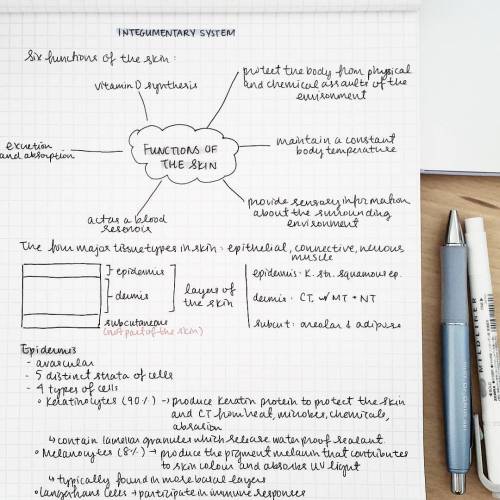 INTEGUMENTARY SYSTEM
Six functions of the skin:
vitamin D synthesis
protect the body from physical
and chemical assaults of the
environment
excretion
and absorption
FUNCTIONS OF
THE SKIN
maintain a constant
body temperature
acts as a blood
resevoir
provide sensory information
about the surrounding
environment
The four major tissue types in skin: epithelial, connective, nervous
muscle
} epidermis
} dermis
subcutaneous
(not part of the skin)
layers of
the skin
epidermis: K. str. squamous ep.
dermis: CT, MT + NT
subcut: areolar & adipose
Epidermis
- avascular
- 5 distinct strata of cells
- 4 types of cells
° Keratinocytes (90%) → produce keratin protein to protect the skin
and CT from heat, microbes, chemicals,
abrasion
↳ contain lamellar granules which release waterproof sealant.
° Melanocytes (8%) → produce the pigment melanin that contributes
to skin colour and absorbs UV light
↳ typically found in more basal layers
° Langerhans cells → participate in immune responses
MILDLINER